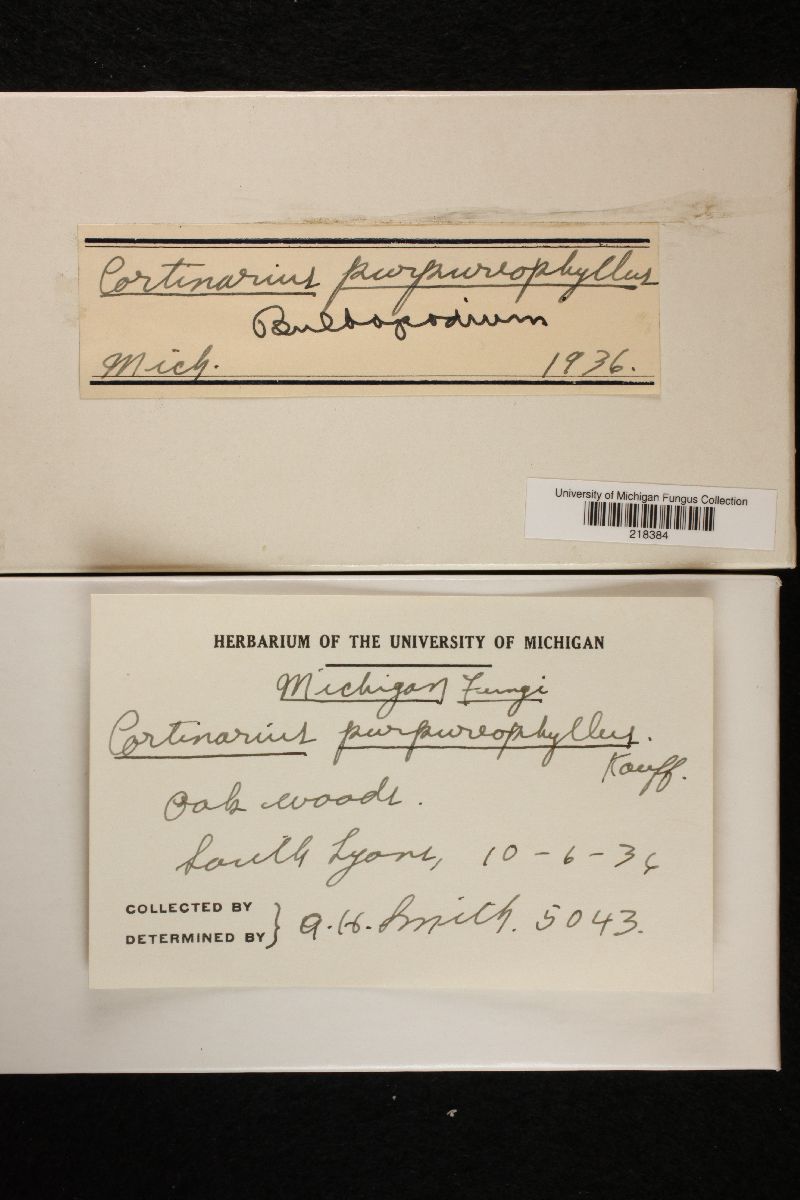 Cortinarius purpureophyllus
Bulbopodium
Mich. 1936.
University of Michigan Fungus Collection
218384
HERBARIUM OF THE UNIVERSITY OF MICHIGAN
Michigan Fungi
Cortinarius purpureophyllus.
Kauff.
Oak woods.
South Lyons, 10-6-36
COLLECTED BY
DETERMINED BY } A.H. Smith. 5043.